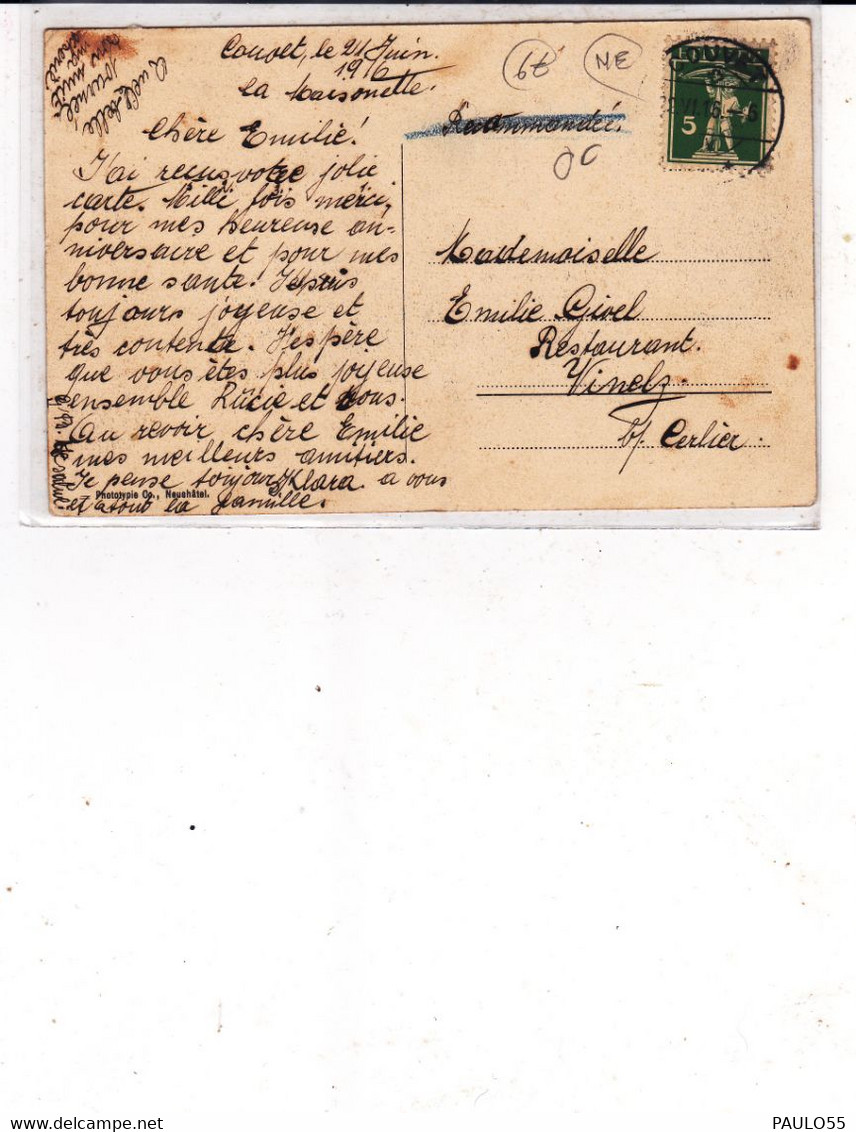 Couvet, le 24 Juin.
1916
La Maisonette.
Chère Emilie!
J'ai reçus votre jolie
carte. Mille fois merci,
pour mes heureuse an-
niversaire et pour mes
bonne sante. Je suis
toujours joyeuse et
très contente. J'espère
que vous êtes plus joijeuse
ensemble Lucie et vous.
Au revoir, chère Emilie
mes meilleurs amitiers.
Je pense toujours à vous
Klara
et a tout la famille.
Quelle belle
journée
Phototypie Co., Neuchâtel.
6z
NE
Recommandée.
COUVET
VI.16
5
Mademoiselle
Emilie Givel
Restaurant.
Vinelz
b/. Cerlier.
PAULO55